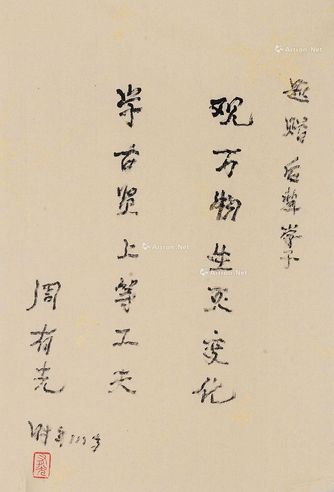 题赠后辈学子
观万物生灭变化
学古贤上等工夫
周有光
时年111岁
Artron.Net
Artron.Net
Artron.Net
Artron.Net